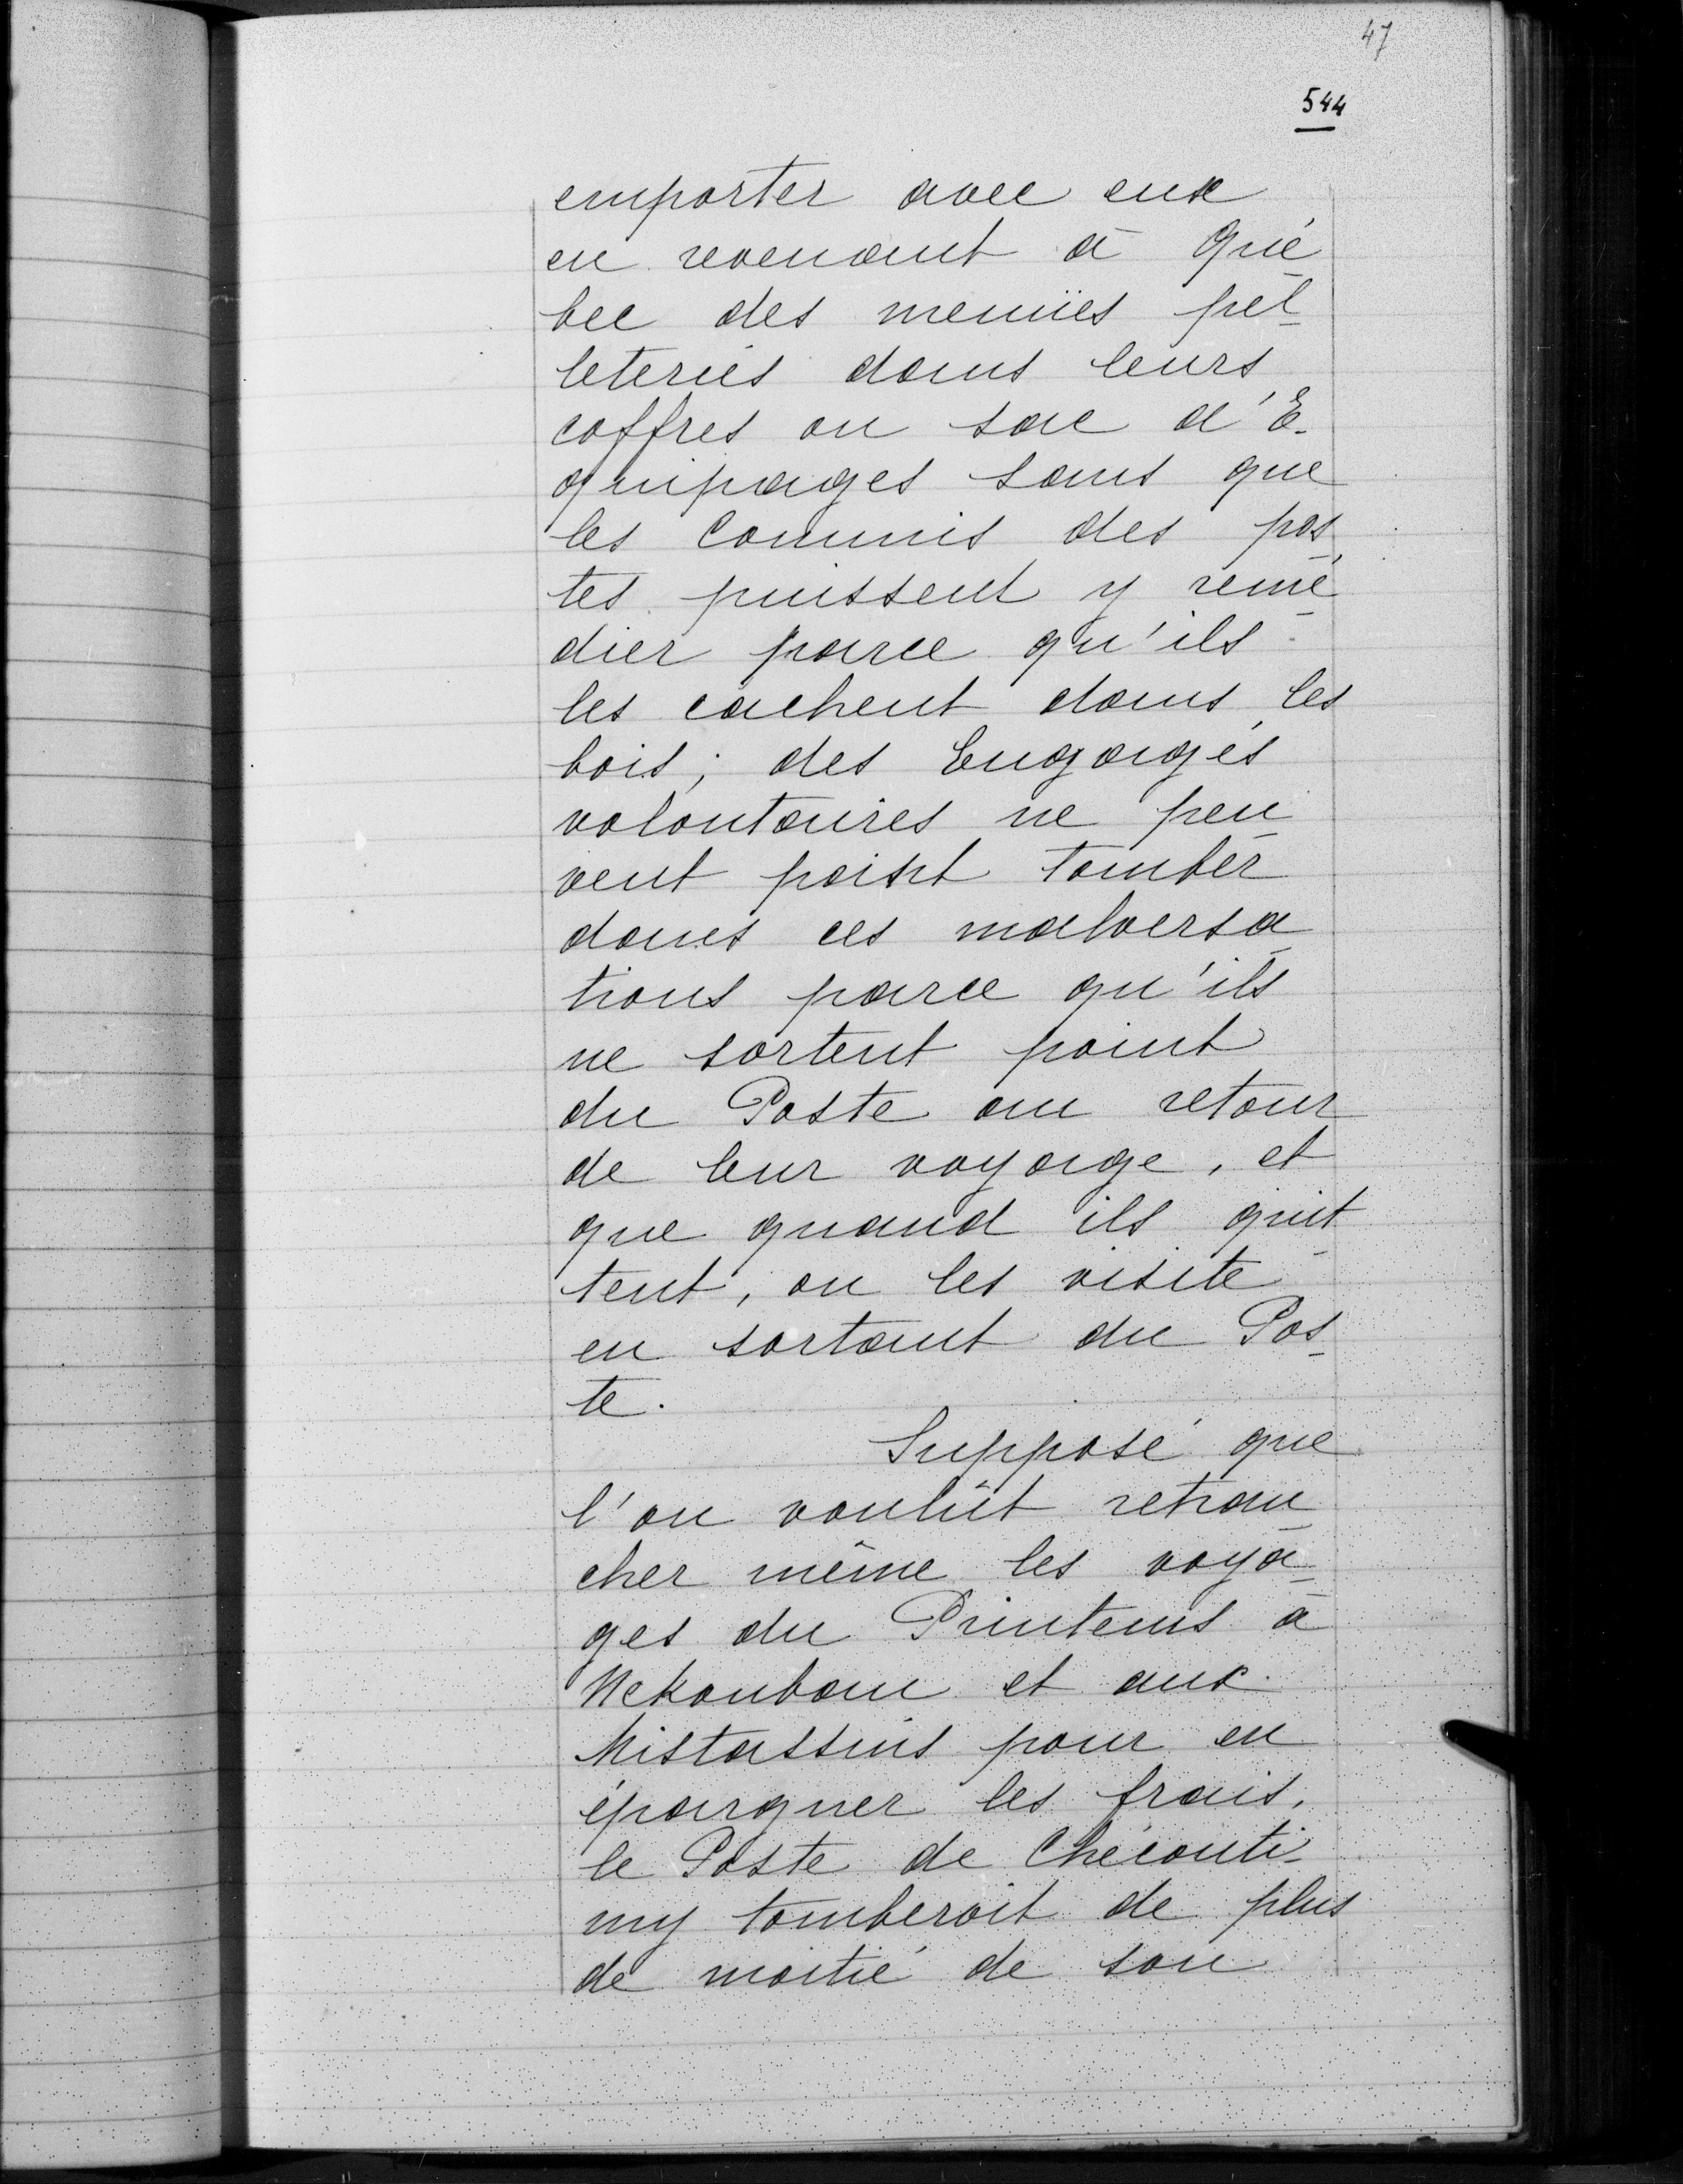 47
544
emporter avec eux
en revenant à Qué-
bec des menües pel-
leteries dans leurs
coffres ou sac d'E-
quipages sans que
les Commis des pos-
tes puissent y remé-
dier parce qu'ils
les cachent dans les
bois; des Engagés
volontaires ne peu-
vent point tomber
dans ces malversa-
tions parce qu'ils
ne sortent point
du Poste au retour
de leur voyage, et
que quand ils quit-
tent, on les visite
en sortant du Pos-
te.
Supposé que
l'on voulût retran-
cher même les voya-
ges du Printems à
Nekoubau et aux
Mistassins pour en
épargner les frais,
le Poste de Chécouti-
my tomberoit de plus
de moitié de son